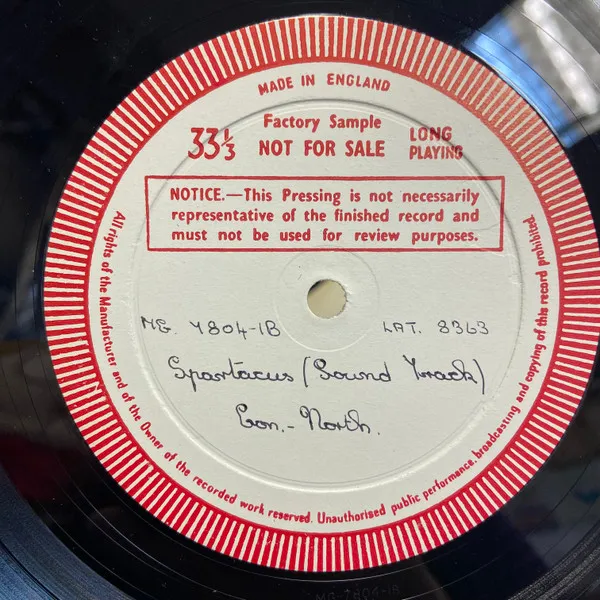 MADE IN ENGLAND
33⅓
Factory Sample
NOT FOR SALE
LONG
PLAYING
NOTICE.—This Pressing is not necessarily
representative of the finished record and
must not be used for review purposes.
MG. 7804-1B
LAT. 8363
Spartacus (Sound Track)
Con.-North.
All rights of the Manufacturer and of the Owner of the recorded work reserved. Unauthorised public performance, broadcasting and copying of this record prohibited.
MG-7804-1B